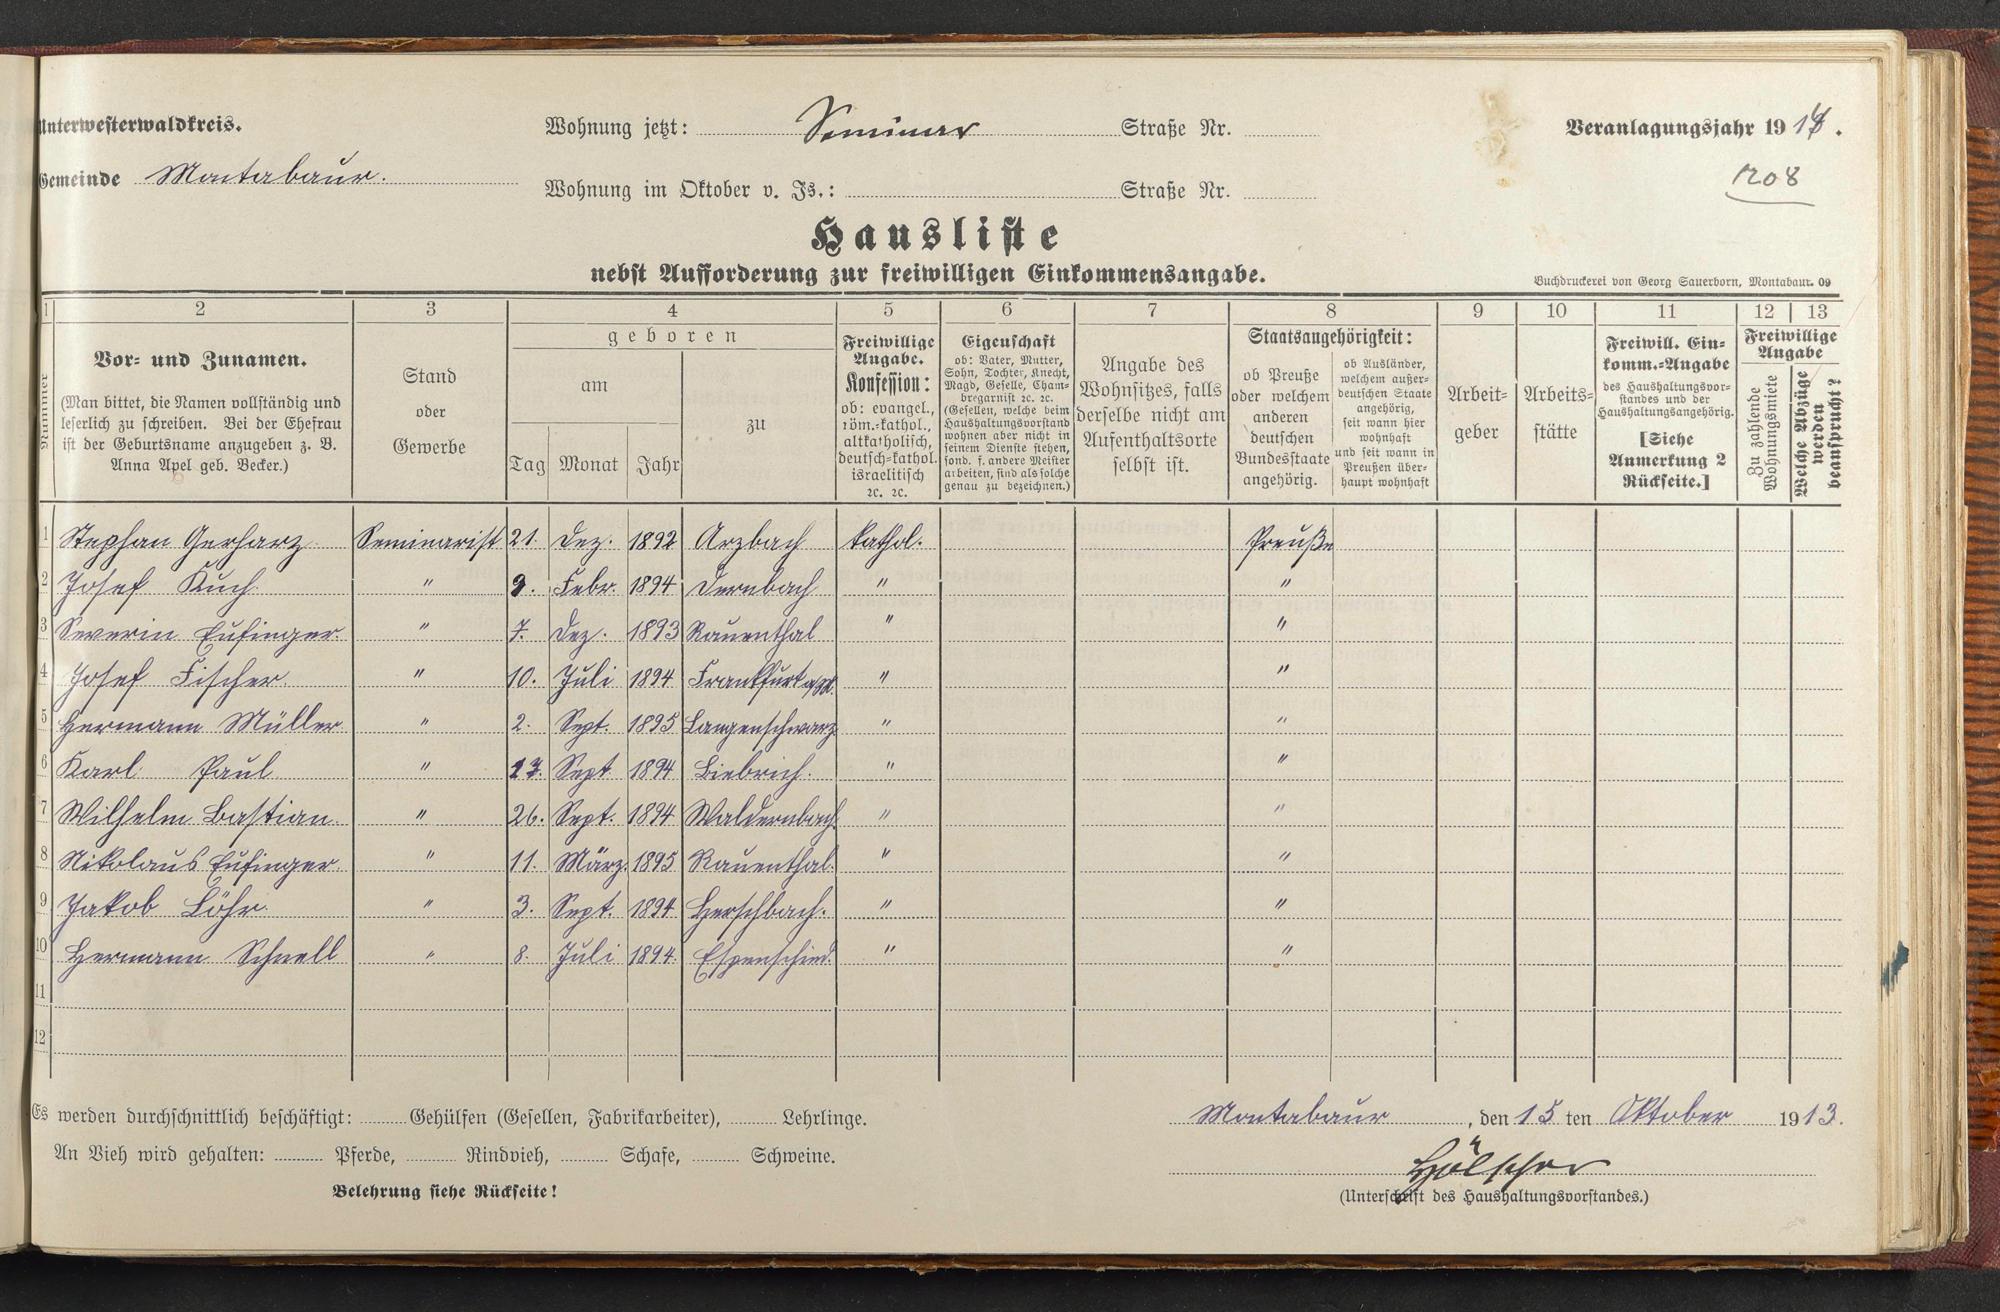 Unterwesterwaldkreis.
Wohnung jetzt: Seminar Straße Nr.
Veranlagungsjahr 1914.
Gemeinde Montabaur.
Wohnung im Oktober v. Js.: Straße Nr.
1208
Hausliste
nebst Aufforderung zur freiwilligen Einkommensangabe.
Buchdruckerei von Georg Sauerborn, Montabaur. 09
1 2 3 4 5 6 7 8 9 10 11 12 13
Nummer
Vor- und Zunamen.
(Man bittet, die Namen vollständig und
leserlich zu schreiben. Bei der Ehefrau
ist der Geburtsname anzugeben z. B.
Anna Apel geb. Becker.)
Stand
oder
Gewerbe
geboren
am
Tag Monat Jahr
zu
Freiwillige
Angabe.
Konfession:
ob: evangel.,
röm.-kathol.,
altkatholisch,
deutsch-kathol.
israelitisch
ec. ec.
Eigenschaft
ob: Vater, Mutter,
Sohn, Tochter, Knecht,
Magd, Geselle, Cham-
bregarnist ec. ec.
(Gesellen, welche beim
Haushaltungsvorstand
wohnen aber nicht in
seinem Dienste stehen,
sond. f. andere Meister
arbeiten, sind als solche
genau zu bezeichnen.)
Angabe des
Wohnsitzes, falls
derselbe nicht am
Aufenthaltsorte
selbst ist.
Staatsangehörigkeit:
ob Preuße
oder welchem
anderen
deutschen
Bundesstaate
angehörig.
ob Ausländer,
welchem außer-
deutschen Staate
angehörig,
seit wann hier
wohnhaft
und seit wann in
Preußen über-
haupt wohnhaft
Arbeit-
geber
Arbeits-
stätte
Freiwill. Ein-
komm.-Angabe
des Haushaltungsvor-
standes und der
Haushaltungsangehörig.
[Siehe
Anmerkung 2
Rückseite.]
Freiwillige
Angabe
Zu zahlende
Wohnungsmiete
Welche Abzüge
werden
beansprucht?
1 Stephan Gerharz Seminarist 21. Dez. 1892 Arzbach kathol. Preuße
2 Josef Kuch " 9. Febr. 1894 Dernbach " "
3 Severin Eufinger. " 7. Dez. 1893 Rauenthal " "
4 Josef Fischer. " 10. Juli 1894 Frankfurt a/M. " "
5 Hermann Müller. " 2. Sept. 1895 Langenschwarz. " "
6 Karl Paul " 17. Sept 1894 Biebrich. " "
7 Wilhelm Bastian. " 26. Sept. 1894 Waldernbach. " "
8 Nikolaus Eufinger. " 11. März. 1895 Rauenthal. " "
9 Jakob Löhr. " 3. Sept. 1894 Herschbach. " "
10 Hermann Schnell " 8. Juli 1894. Espenschied. " "
11
12
Es werden durchschnittlich beschäftigt: Gehülfen (Gesellen, Fabrikarbeiter), Lehrlinge.
Montabaur, den 15 ten Oktober 1913.
An Vieh wird gehalten: Pferde, Rindvieh, Schafe, Schweine.
Hölscher
Belehrung siehe Rückseite!
(Unterschrift des Haushaltungsvorstandes.)